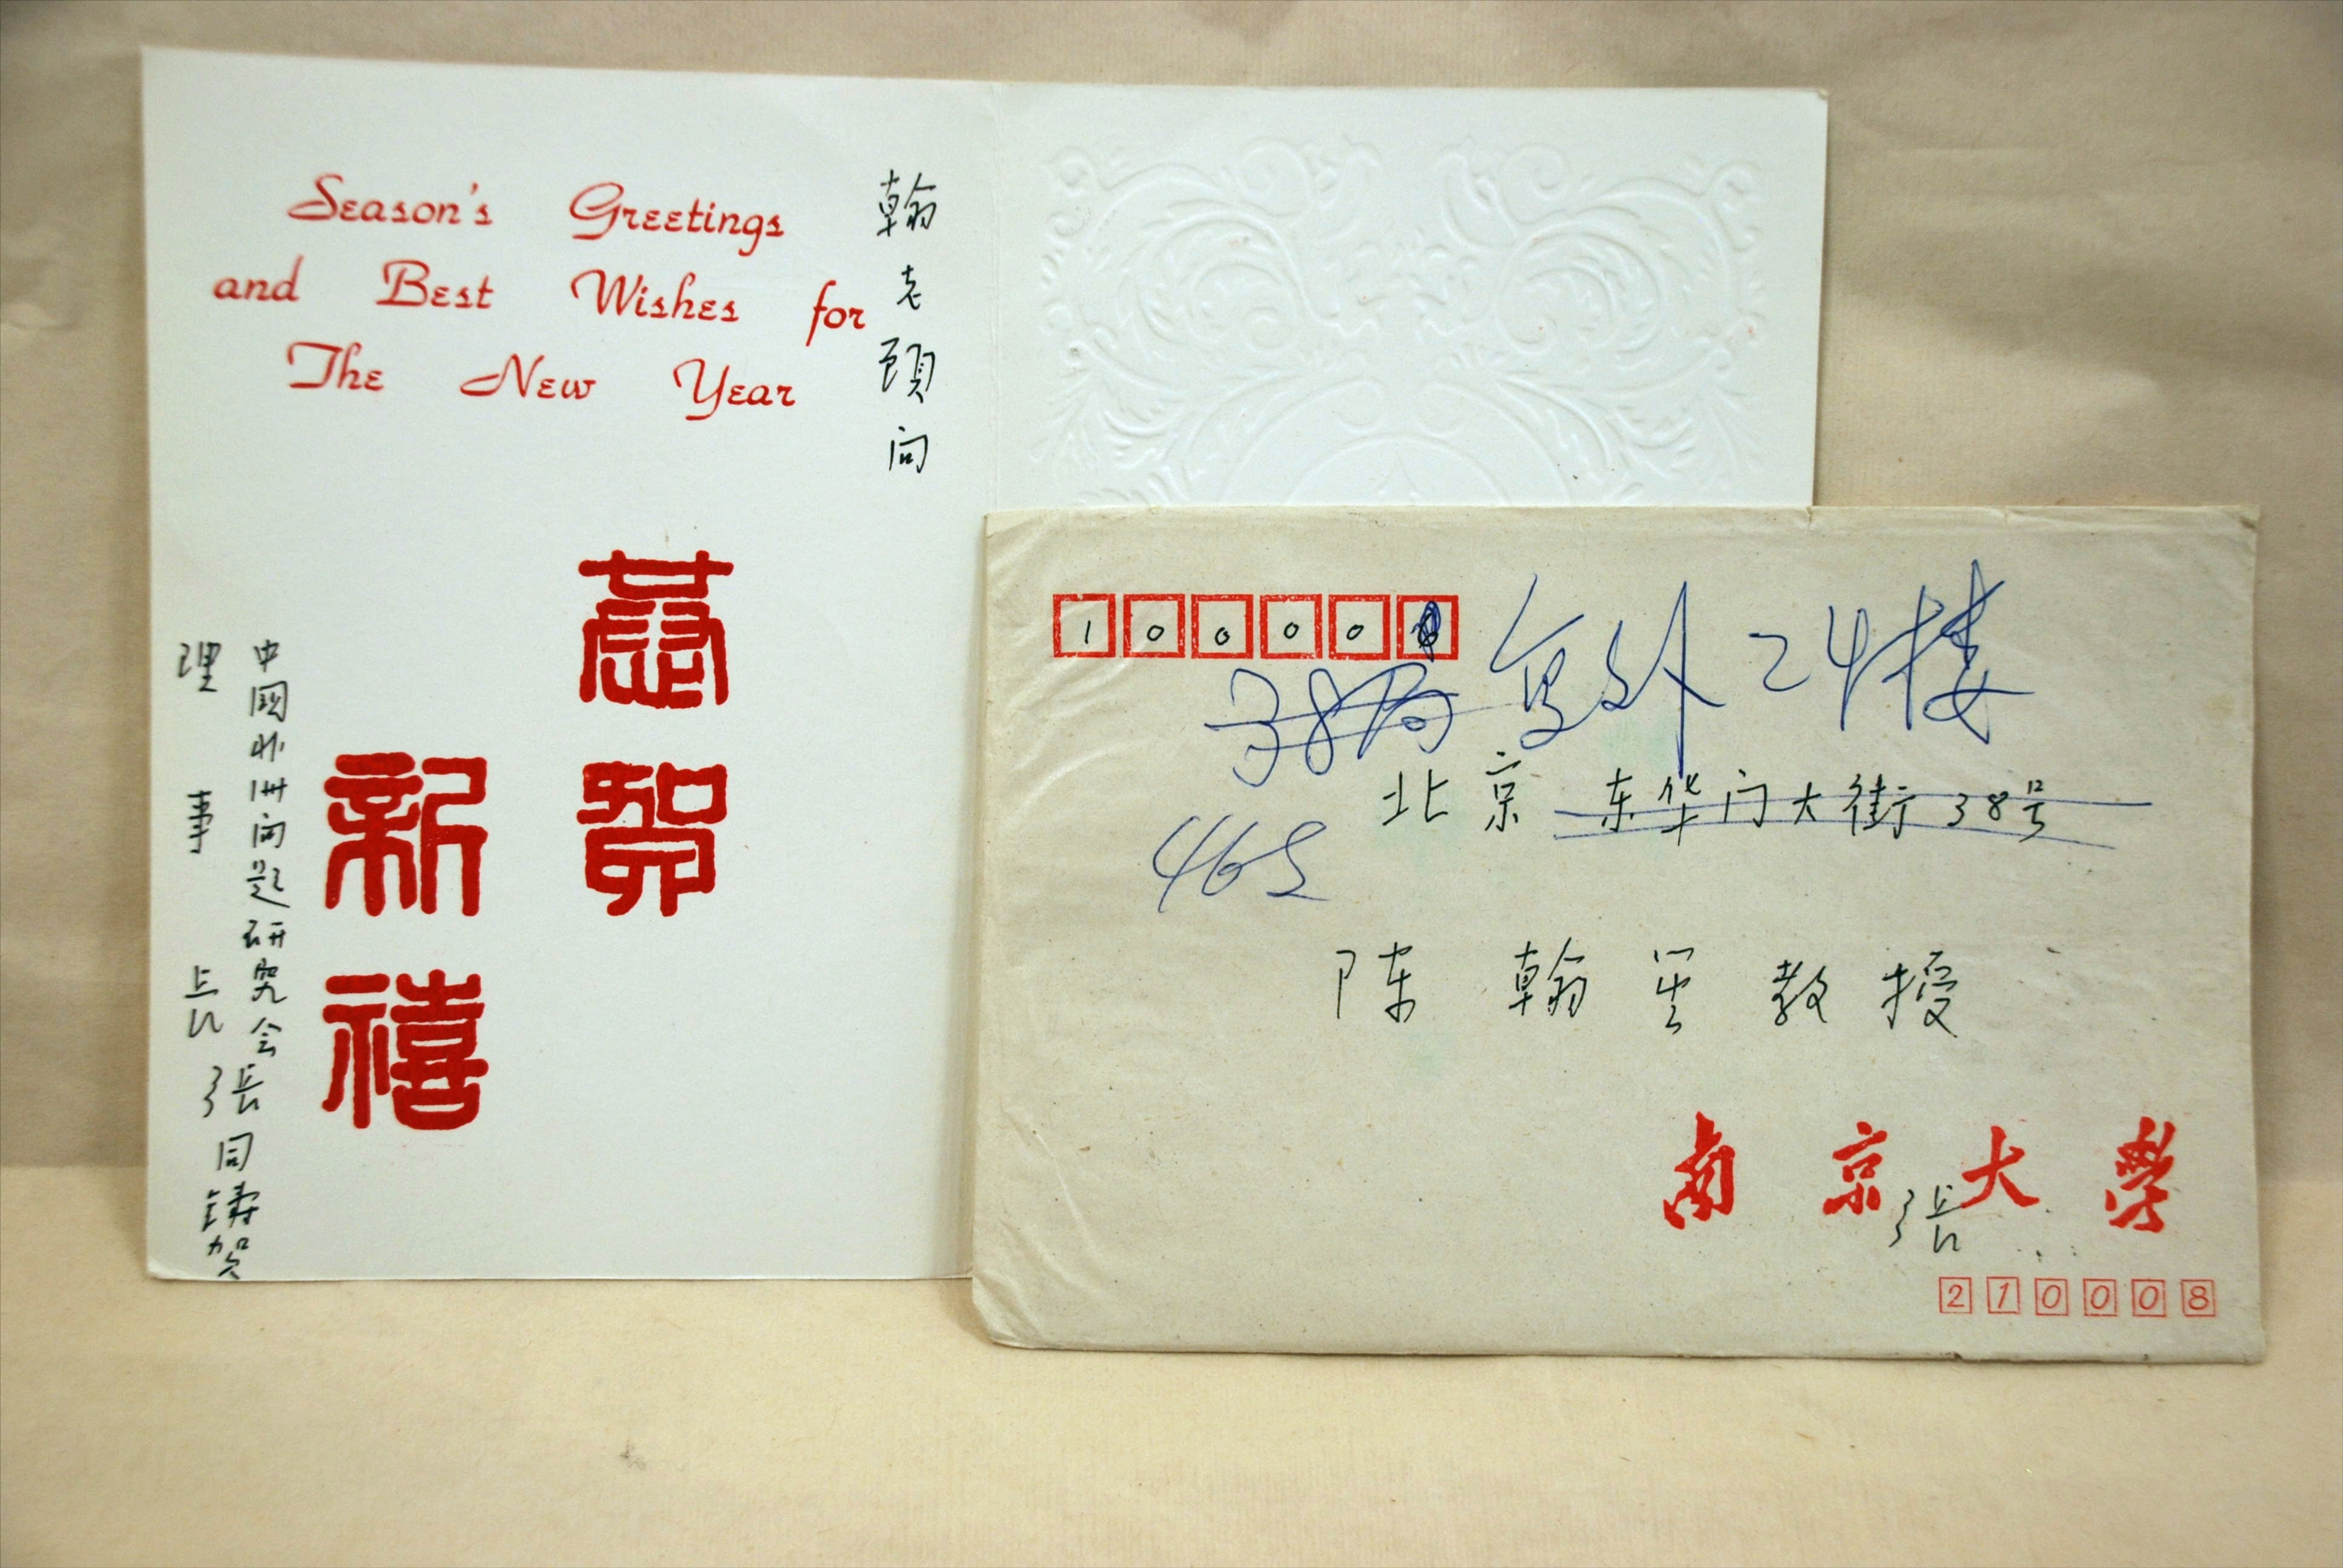 Season's Greetings
and Best Wishes for
The New Year
翰老顾问
恭賀
新禧
中國非洲问题研究会
理事長 張同铸贺
10000
复外24楼
北京 东华门大街38号
陈翰笙教授
南京大學
張
210008